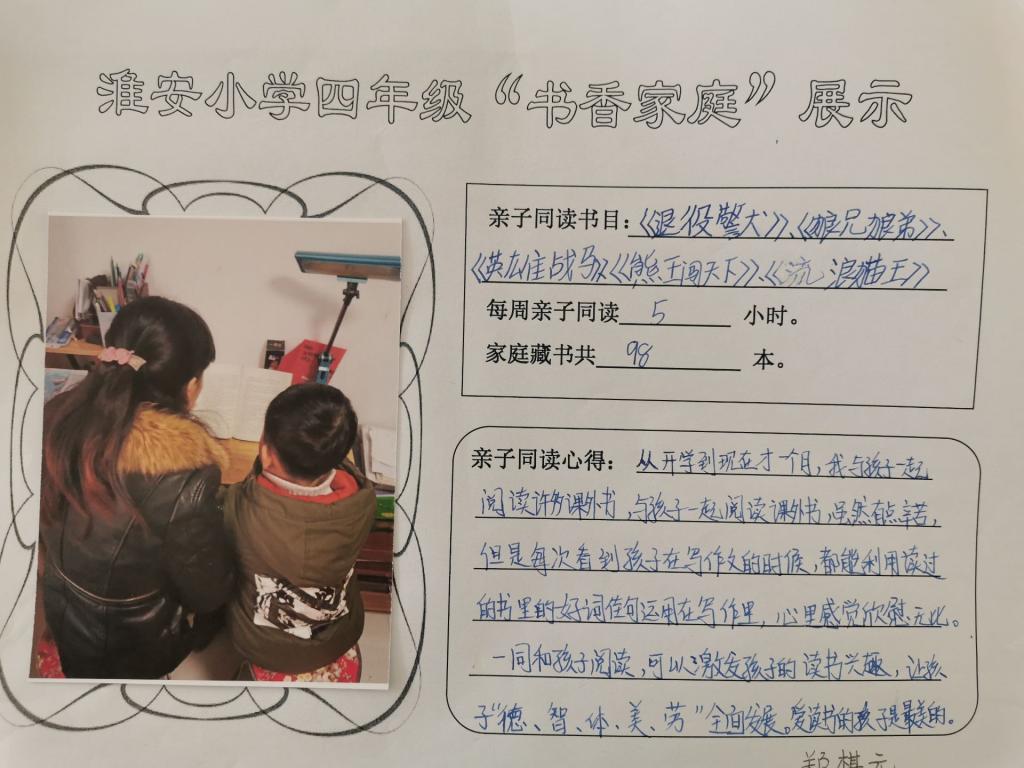 淮安小学四年级“书香家庭”展示
亲子同读书目:《退役警犬》、《狼兄狼弟》、
《英雄战马》《熊王闯天下》、《流浪猫王》
每周亲子同读 5 小时。
家庭藏书共 98 本。
亲子同读心得: 从开学到现在才一个月,我与孩子一起
阅读许多课外书,与孩子一起阅读课外书,虽然有点辛苦,
但是每次看到孩子在写作文的时候,都能利用读过
的书里的好词佳句运用在写作里,心里感觉欣慰无比。
一同和孩子阅读,可以激发孩子的读书兴趣,让孩
子“德、智、体、美、劳”全面发展。爱读书的孩子是最美的。
郑棋元